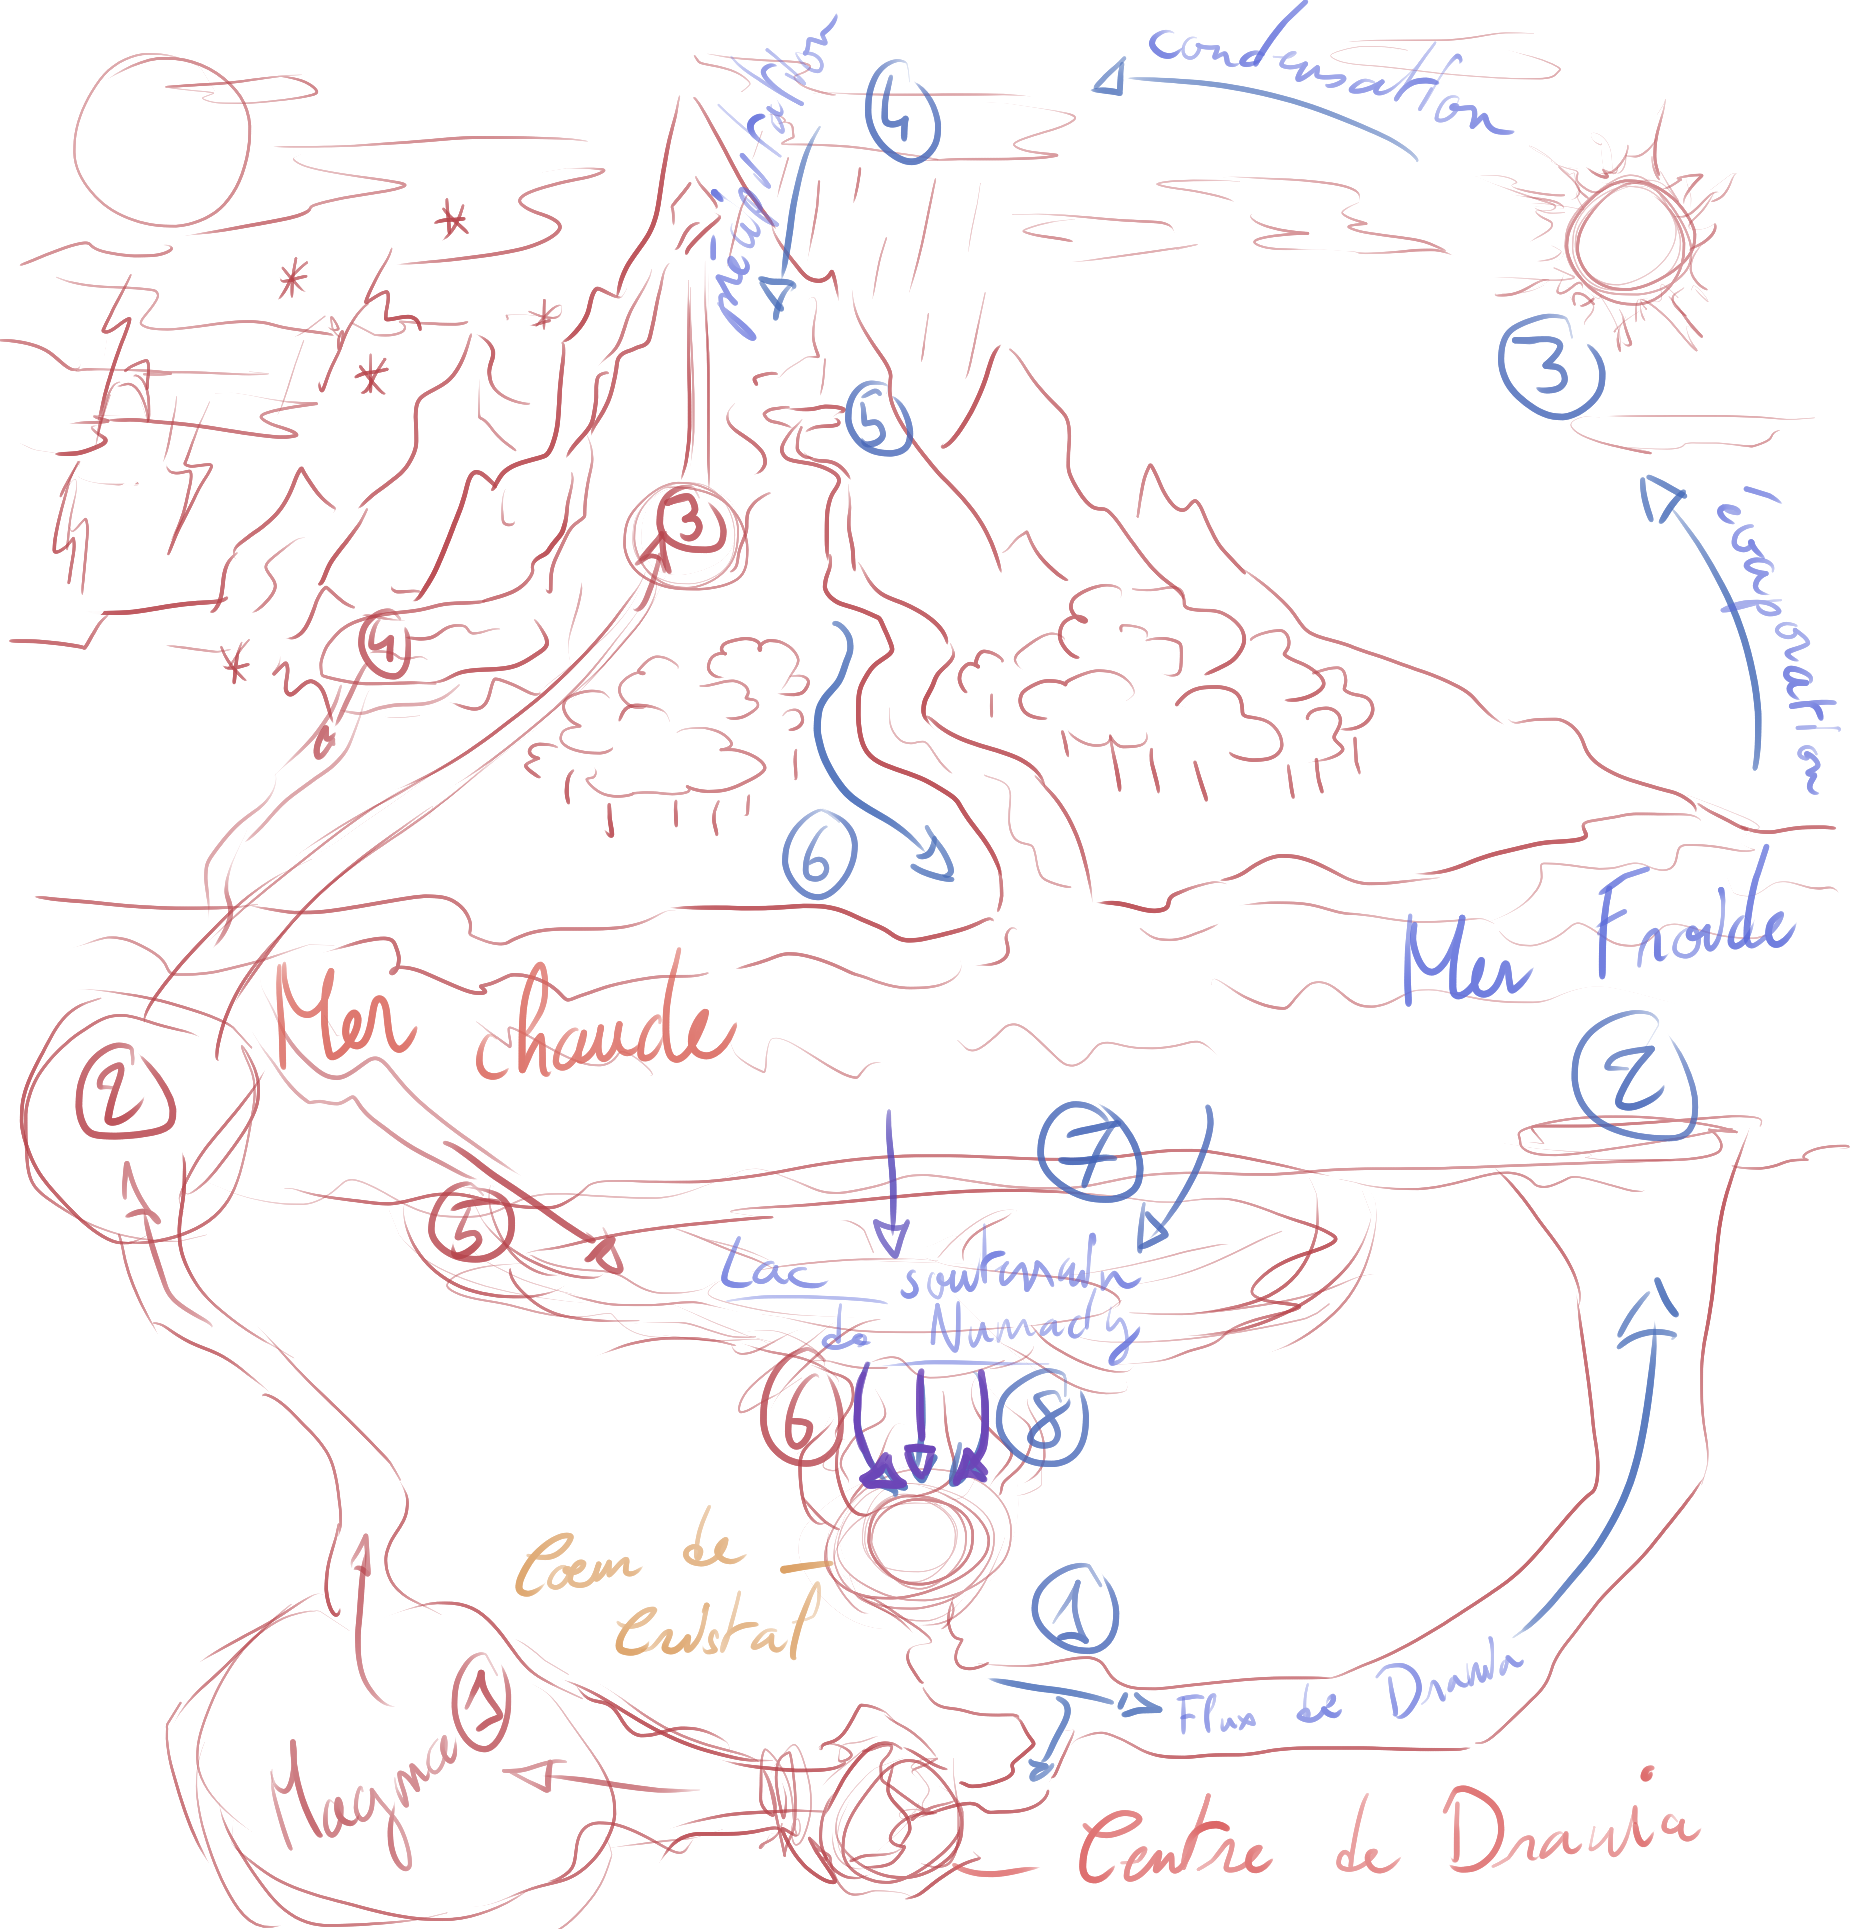 Condensation
Précipitation
4
3
5
Évaporation
3
4
6
Mer Froide
Mer chaude
2
2
7
5
Lac souterrain
de Numady
6
8
Coeur de
Cristal
1
1
Flux de Drawia
Magma
Centre de Drawia